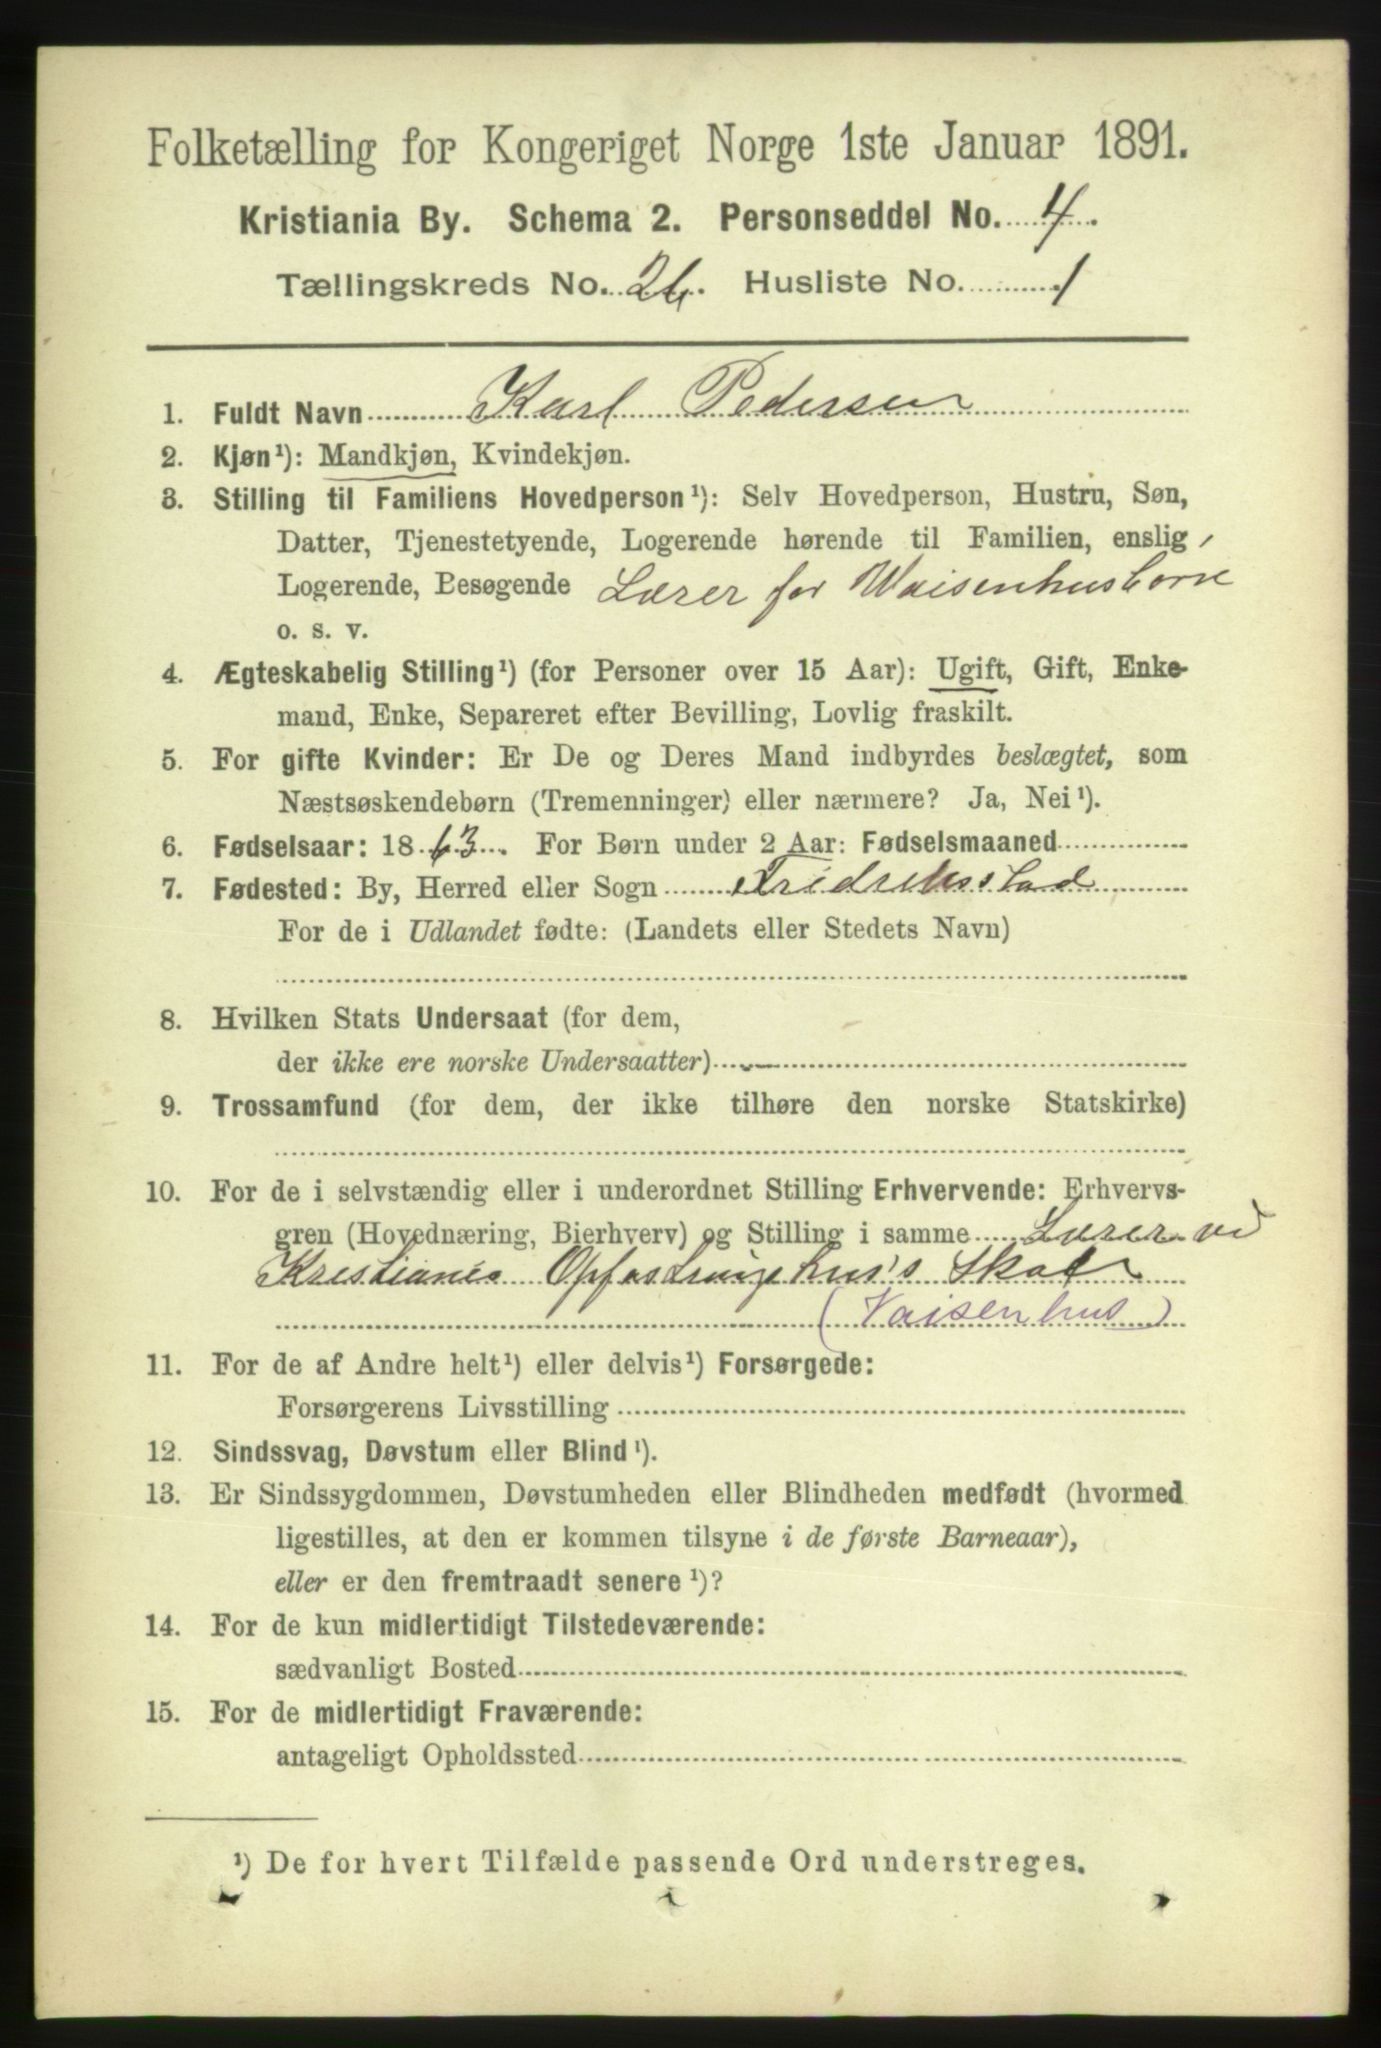 Folketælling for Kongeriget Norge 1ste Januar 1891.
Kristiania By. Schema 2. Personseddel No. 4.
Tællingskreds No. 26. Husliste No. 1
1. Fuldt Navn Karl Pedersen
2. Kjøn¹): Mandkjøn, Kvindekjøn.
3. Stilling til Familiens Hovedperson¹): Selv Hovedperson, Hustru, Søn,
Datter, Tjenestetyende, Logerende hørende til Familien, enslig
Logerende, Besøgende Lærer for Waisenhusbørn
o. s. v.
4. Ægteskabelig Stilling¹) (for Personer over 15 Aar): Ugift, Gift, Enke-
mand, Enke, Separeret efter Bevilling, Lovlig fraskilt.
5. For gifte Kvinder: Er De og Deres Mand indbyrdes beslægtet, som
Næstsøskendebørn (Tremenninger) eller nærmere? Ja, Nei¹).
6. Fødselsaar: 1863. For Børn under 2 Aar: Fødselsmaaned
7. Fødested: By, Herred eller Sogn Fredriksstad
For de i Udlandet fødte: (Landets eller Stedets Navn)
8. Hvilken Stats Undersaat (for dem,
der ikke ere norske Undersaatter)
9. Trossamfund (for dem, der ikke tilhøre den norske Statskirke)
10. For de i selvstændig eller i underordnet Stilling Erhvervende: Erhvervs-
gren (Hovednæring, Bierhverv) og Stilling i samme Lærer ved
Kristiania Opfostringshus's Skole
(Vaisenhus)
11. For de af Andre helt¹) eller delvis¹) Forsørgede:
Forsørgerens Livsstilling
12. Sindssvag, Døvstum eller Blind¹).
13. Er Sindssygdommen, Døvstumheden eller Blindheden medfødt (hvormed
ligestilles, at den er kommen tilsyne i de første Barneaar),
eller er den fremtraadt senere¹)?
14. For de kun midlertidigt Tilstedeværende:
sædvanligt Bosted
15. For de midlertidigt Fraværende:
antageligt Opholdssted
¹) De for hvert Tilfælde passende Ord understreges.